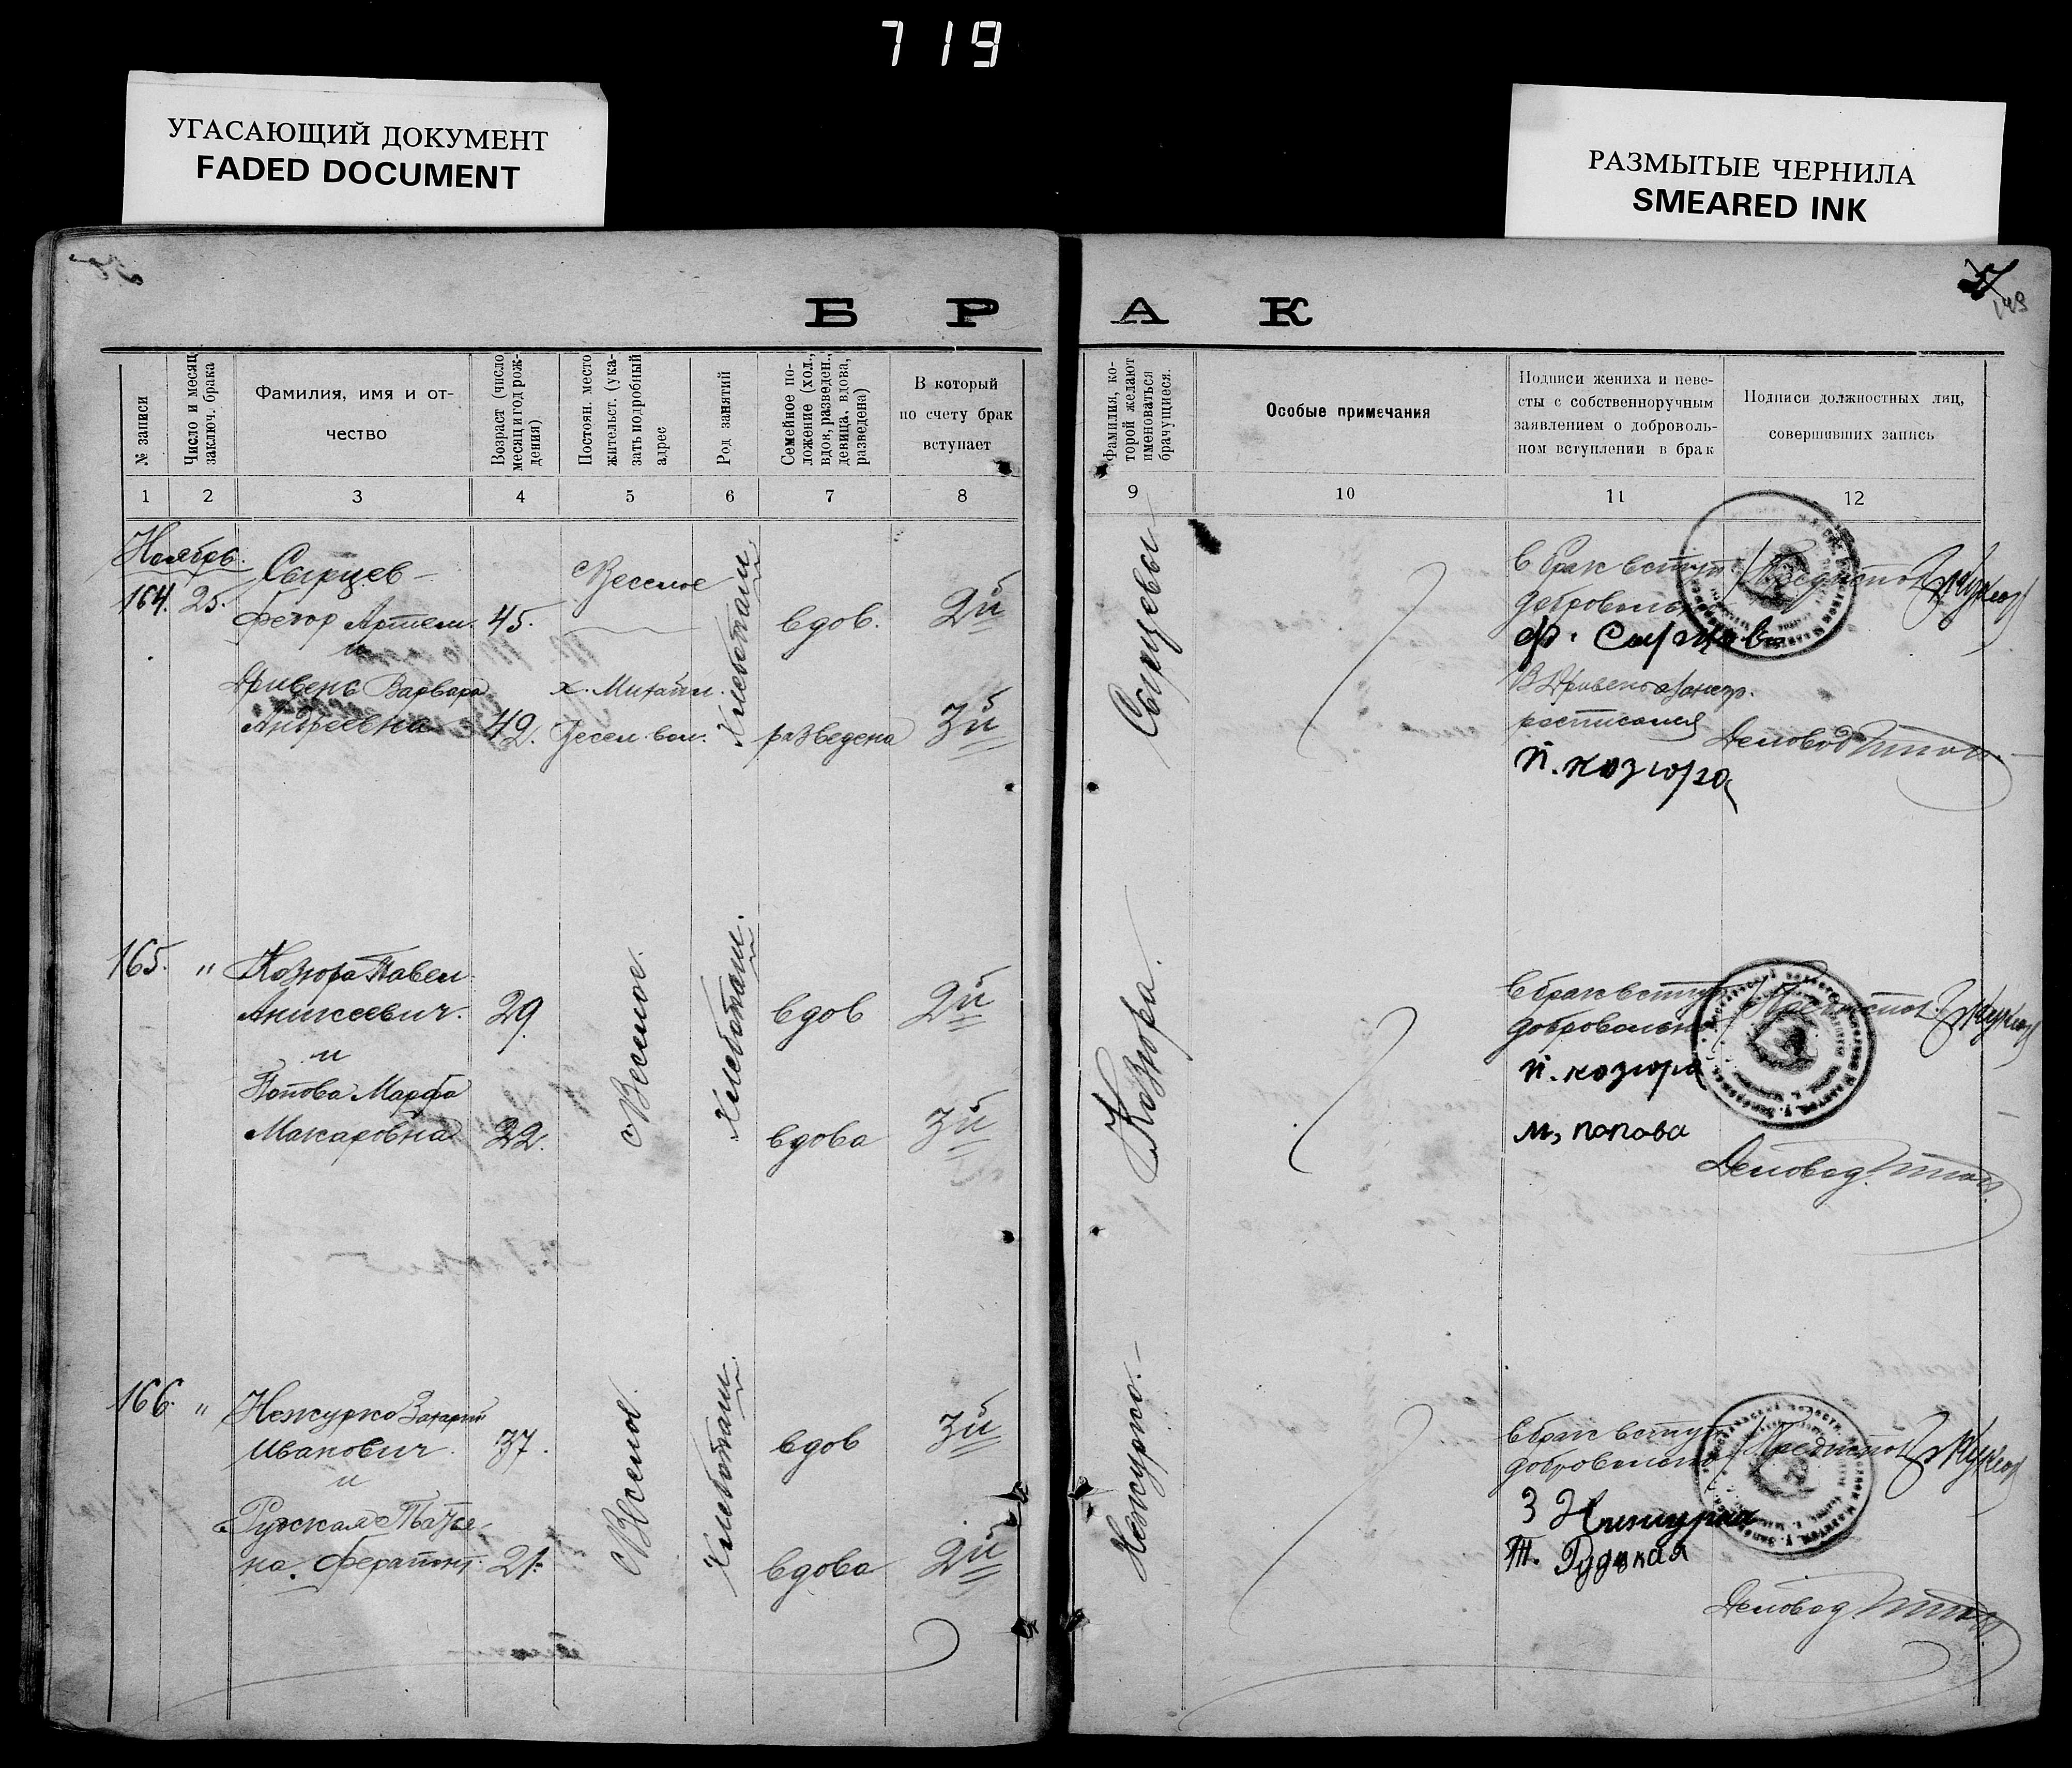 719
УГАСАЮЩИЙ ДОКУМЕНТ
FADED DOCUMENT
РАЗМЫТЫЕ ЧЕРНИЛА
SMEARED INK
Б Р А К
№ записи
Число и месяц
заключ. брака
Фамилия, имя и от-
чество
Возраст (число
месяц и год рож-
дения)
Постоян. место
жительст. (ука-
зать подробный
адрес
Род занятий
Семейное по-
ложение (хол.,
вдов, разведен.,
девица, вдова,
разведена)
В который
по счету брак
вступает
Фамилия, ко-
торой желают
именоваться
брачущиеся.
Особые примечания
Подписи жениха и неве-
сты с собственноручным
заявлением о доброволь-
ном вступлении в брак
Подписи должностных лиц,
совершивших запись
1 2 3 4 5 6 7 8 9 10 11 12
Ноябрь.
164. 25.
Сырцев
Федор Артем. 45.
и
Варвара
Андреевна 42.
с Веселое
х. Михайл.
Весел. вол.
Хлебопаш.
вдов.
разведена
2й
3й
Сырцевы
В брак вступ.
добровольно
ф. Сырцев
расписался
п. козюра
Деловод
165. "
Козюра Павел
Алексеевич. 29
и
Попова Марфа
Макаровна 22.
с Веселое.
Хлебопаш.
вдов
вдова
2й
3й
Козюра.
В брак вступ
добровольно
п. козюра
м, попова
Деловод.
166. "
Нежурко Захарий
Иванович. 37.
и
Татья-
на. Ферапонт. 21.
с Веселое.
Хлебопаш.
вдов
вдова
3й
2й
Нежурко.
В брак вступ
добровольно
З
Т. Рудская
Деловод.